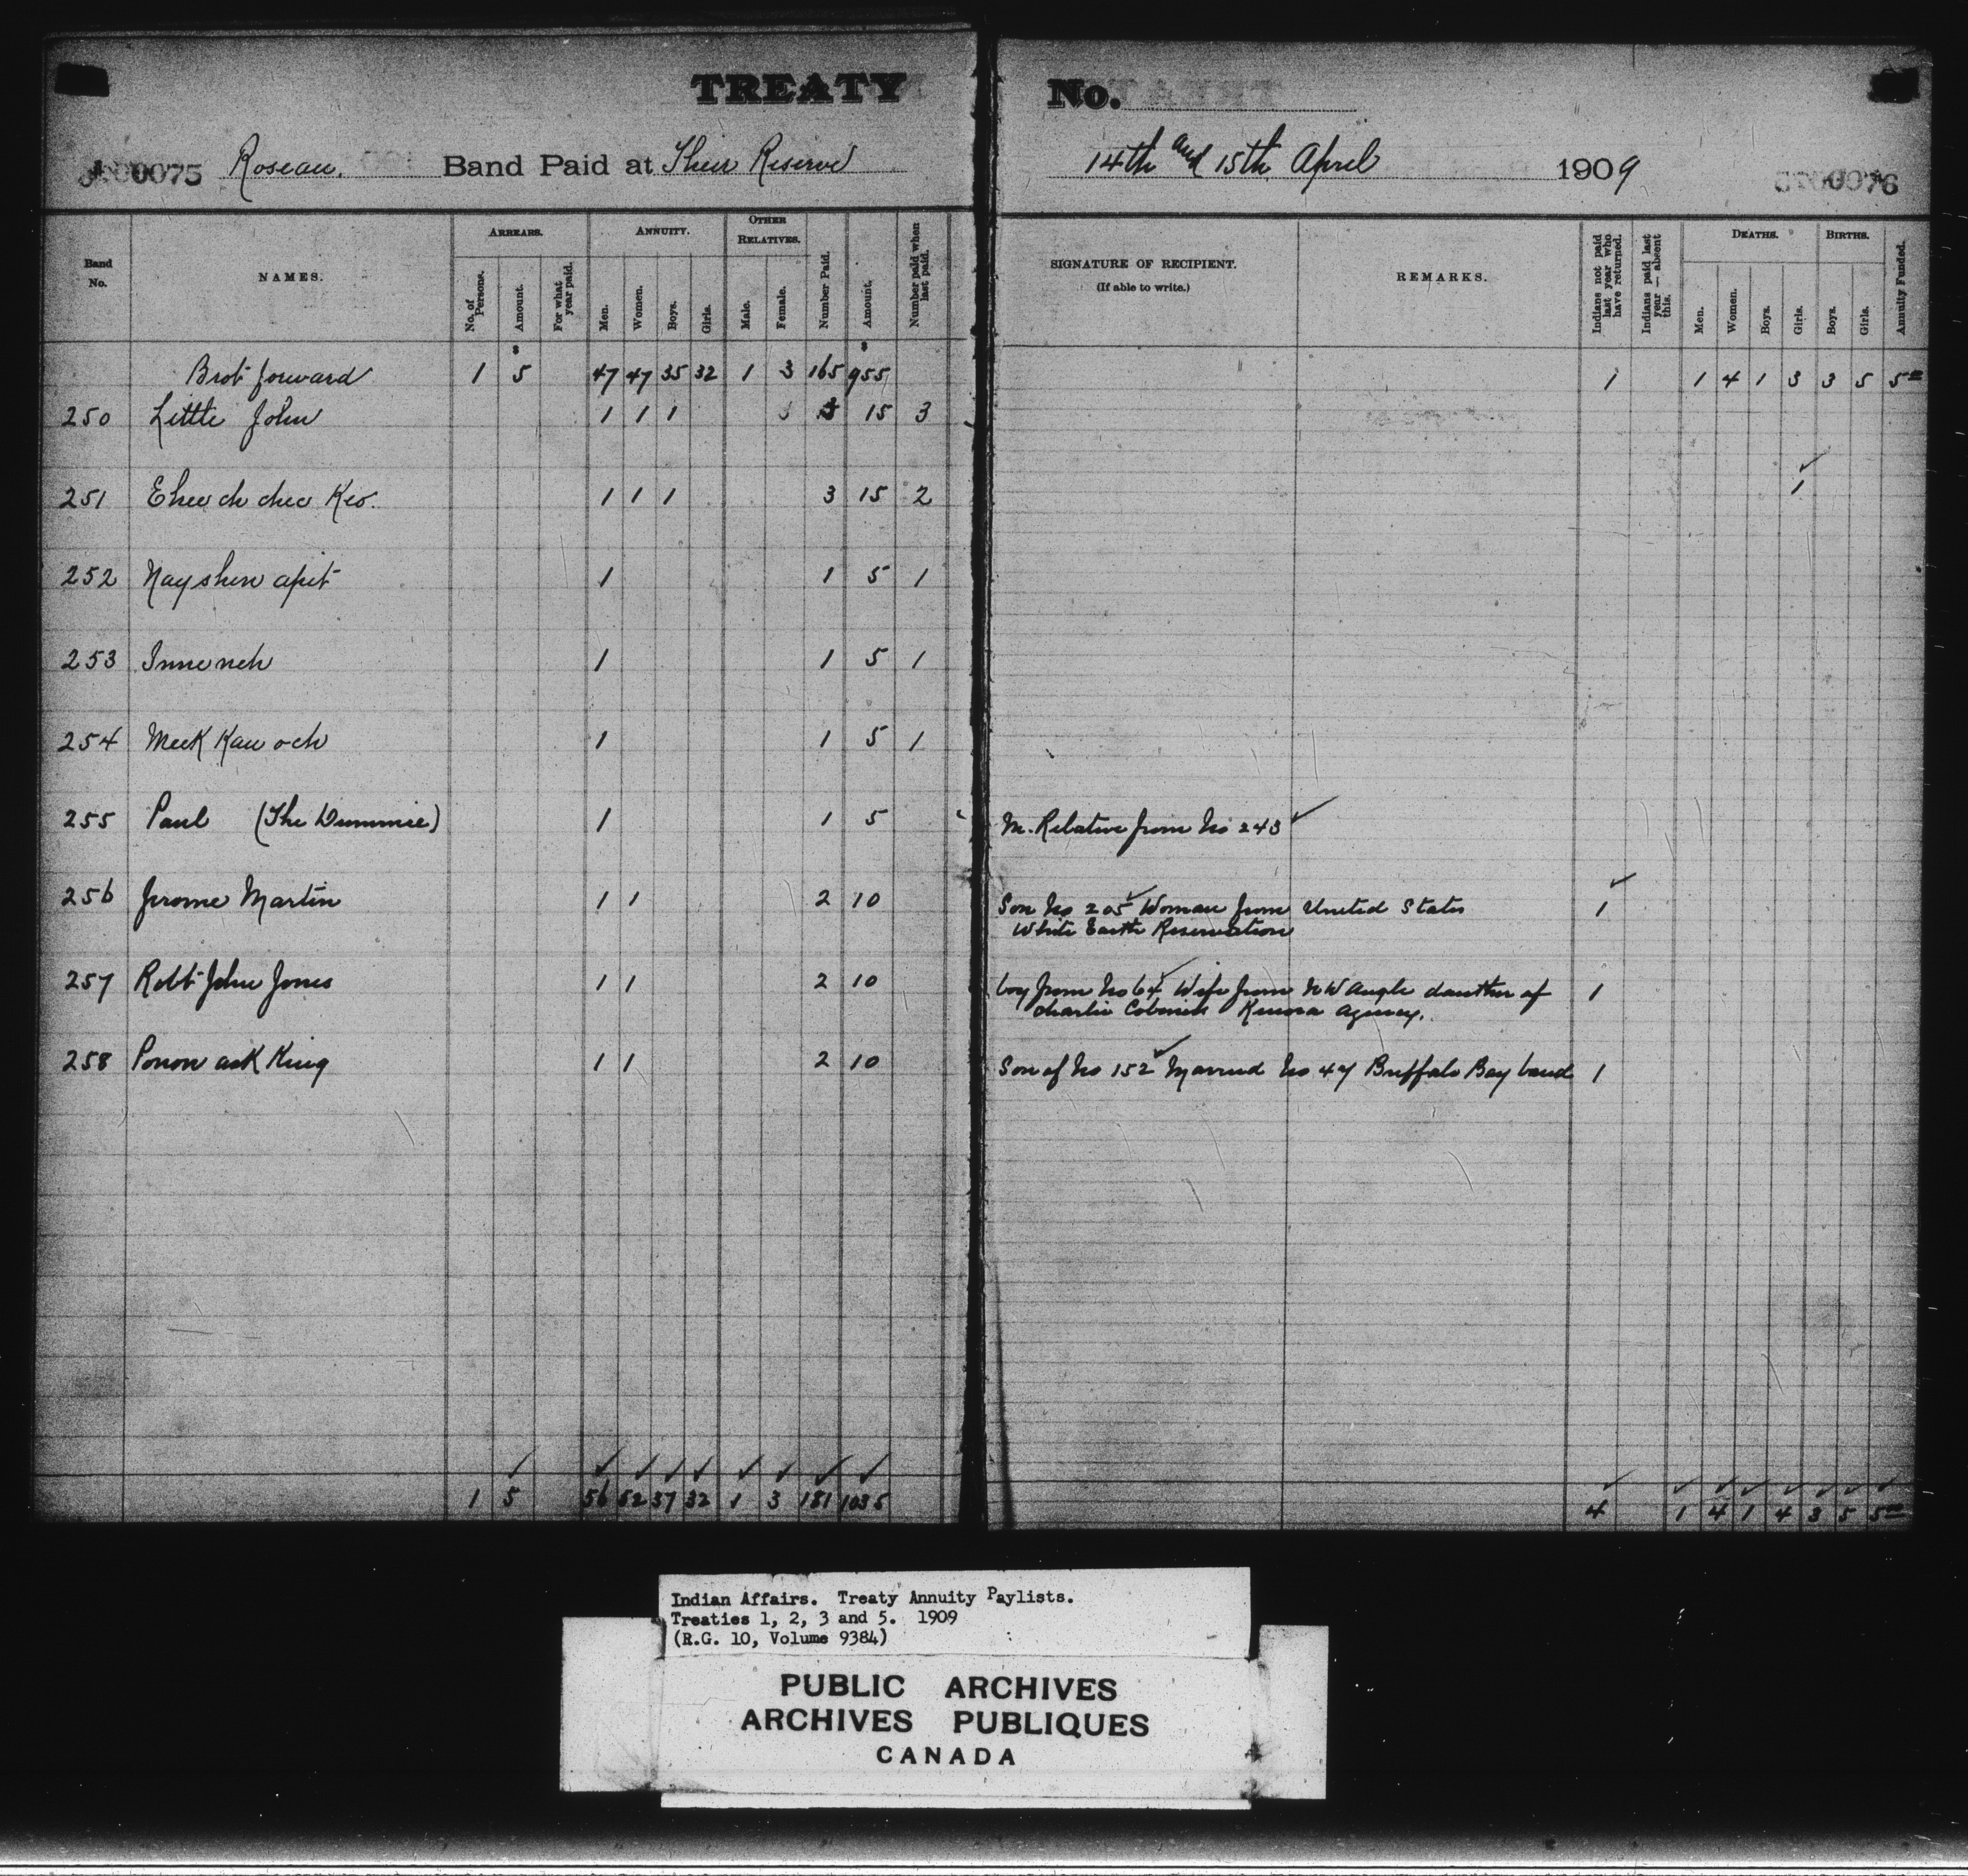 TREATY No.
0075 Roseau. Band Paid at Their Reserve 14th and 15th April 1909 76
Band No. NAMES. ARREARS. No. of Persons. Amount. For what year paid. ANNUITY. Men. Women. Boys. Girls. OTHER RELATIVES. Male. Female. Number Paid. Amount. Number paid when last paid. SIGNATURE OF RECIPIENT. (If able to write.) REMARKS. Indians not paid last year who have returned. Indians paid last year — absent this. DEATHS. Men. Women. Boys. Girls. BIRTHS. Boys. Girls. Annuity Funded.
Brot forward 1 $5 47 47 35 32 1 3 165 $955 1 1 4 1 3 3 5 5=
250 Little John 1 1 1 3 15 3
251 1 1 1 3 15 2 1
252 Nayshen apit 1 1 5 1
253 1 1 5 1
254 Meek Kaw och 1 1 5 1
255 Paul (The Dummie) 1 1 5 M. Relative from No 243
256 Jerome Martin 1 1 2 10 Son No 205 Woman from United States 1
White Earth Reservation
257 Robt John Jones 1 1 2 10 boy from No 64 Wife from NW Angle daughter of 1
Charlie Kenora Agency.
258 King 1 1 2 10 Son of No 152 Married No 47 Buffalo Bay band 1
1 5 56 52 37 32 1 3 181 1035 4 1 4 1 4 3 5 5 00
Indian Affairs. Treaty Annuity Paylists.
Treaties 1, 2, 3 and 5. 1909
(R.G. 10, Volume 9384)
PUBLIC ARCHIVES
ARCHIVES PUBLIQUES
CANADA